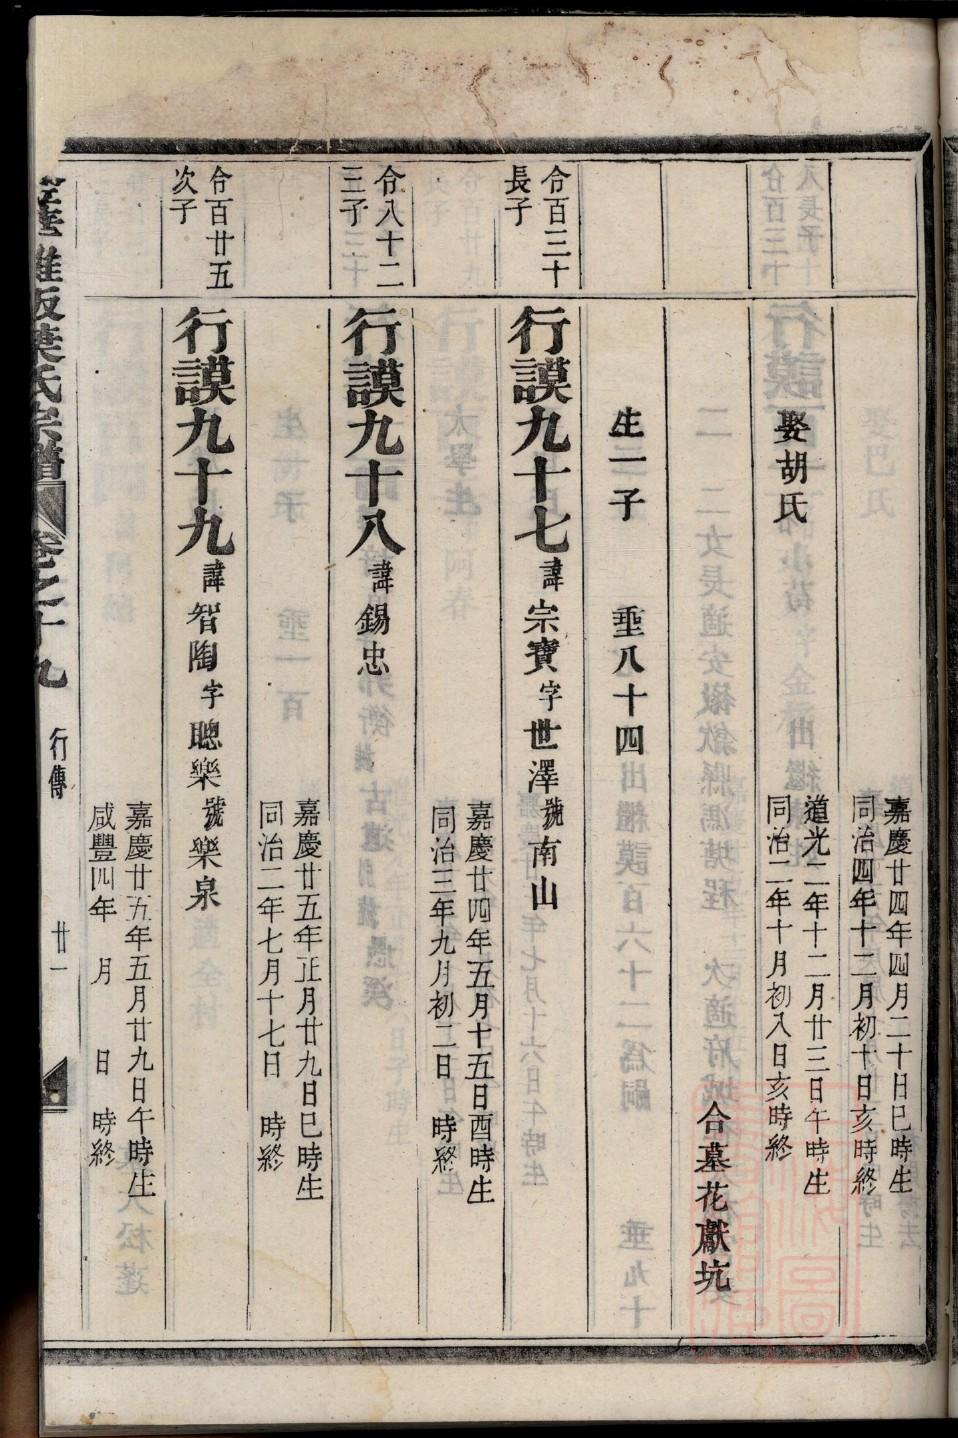 嘉慶廿四年四月二十日巳時生
同治四年十二月初十日亥時終
娶胡氏
道光二年十二月廿三日午時生
同治二年十月初入日亥時終
合墓花獻坑
生一子 垂八十四
令百三十
長子
行謨九十七諱宗寶字世澤號南山
嘉慶廿四年五月十五日酉時生
同治三年九月初二日 時終
令八十二
三子
行謨九十八諱錫忠
嘉慶廿五年正月廿九日巳時生
同治二年七月十七日 時終
令百廿五
次子
行謨九十九諱智陶字聰樂號樂泉
嘉慶廿五年五月廿九日午時生
咸豐四年 月 日 時終
葉氏宗譜 卷之十九 行傳 廿一